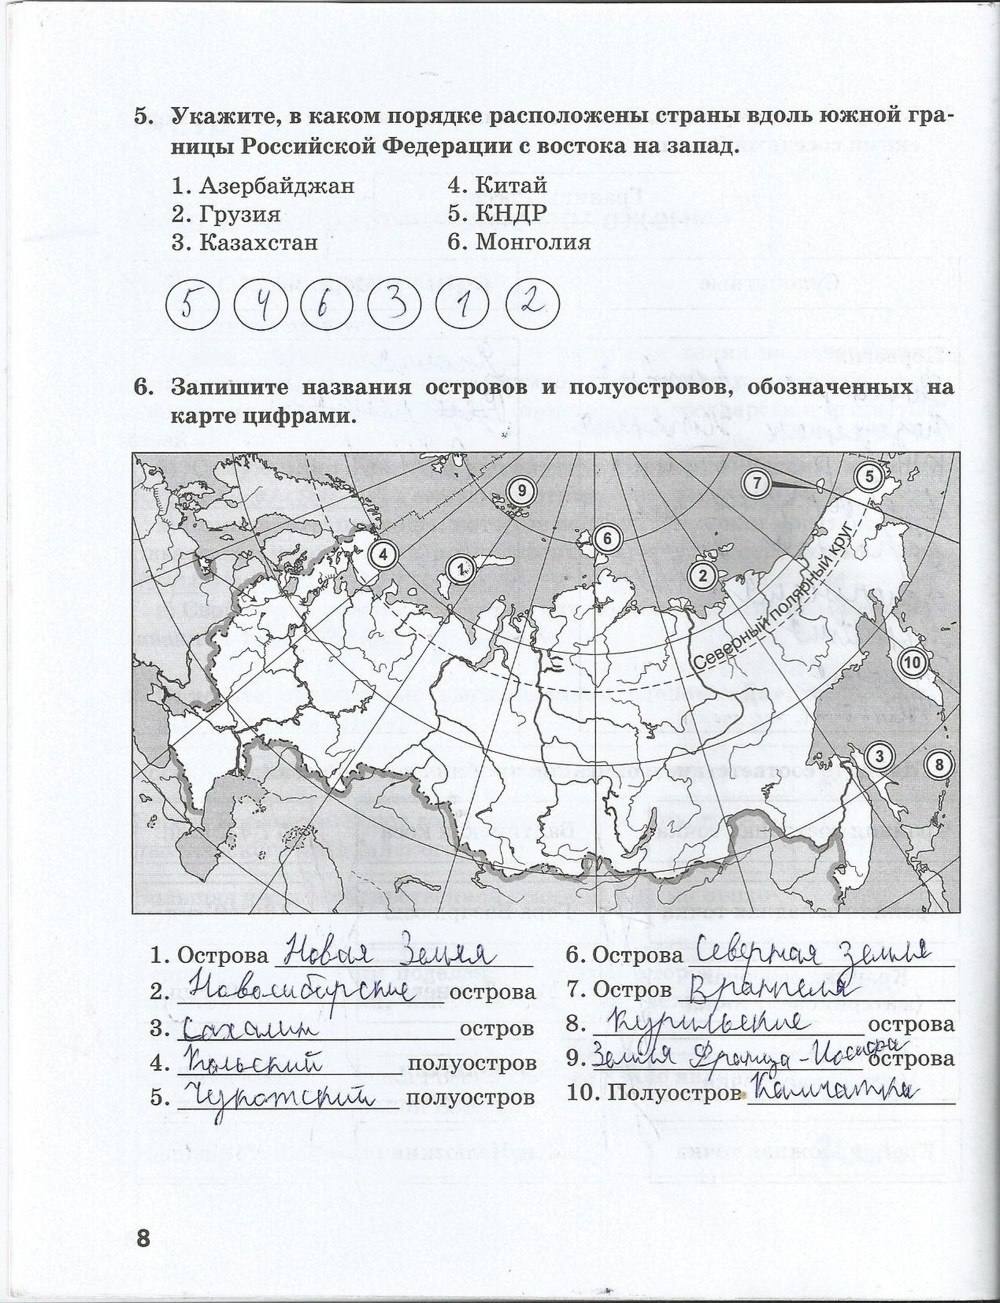 5. Укажите, в каком порядке расположены страны вдоль южной гра-
ницы Российской Федерации с востока на запад.
1. Азербайджан
2. Грузия
3. Казахстан
4. Китай
5. КНДР
6. Монголия
5 4 6 3 1 2
6. Запишите названия островов и полуостровов, обозначенных на
карте цифрами.
9
7
5
4
1
6
2
Северный полярный круг
10
3
8
1. Острова Новая Земля
2. Новосибирские острова
3. Сахалин остров
4. Кольский полуостров
5. Чукотский полуостров
6. Острова Северная Земля
7. Остров Врангеля
8. Курильские острова
9. Земля Франца-Иосифа острова
10. Полуостров Камчатка
8